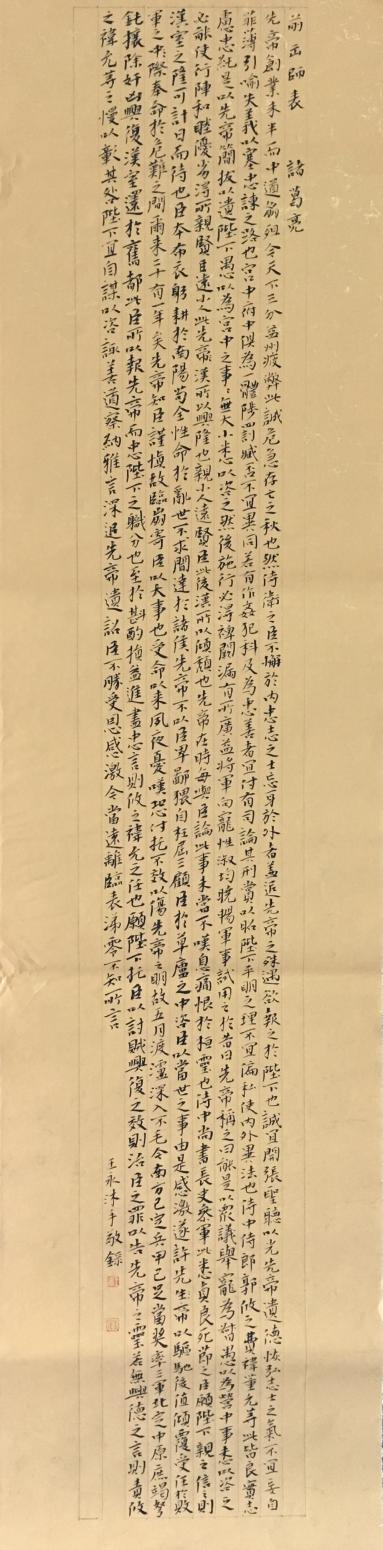 前出師表　諸葛亮
先帝創業未半而中道崩殂今天下三分益州疲弊此誠危急存亡之秋也然侍衛之臣不懈於內忠志之士忘身於外者蓋追先帝之殊遇欲報之於陛下也誠宜開張聖聽以光先帝遺德恢弘志士之氣不宜妄自
菲薄引喻失義以塞忠諫之路也宮中府中俱為一體陟罰臧否不宜異同若有作姦犯科及為忠善者宜付有司論其刑賞以昭陛下平明之理不宜偏私使內外異法也侍中侍郎郭攸之費禕董允等此皆良實志
慮忠純是以先帝簡拔以遺陛下愚以為宮中之事〻無大小悉以咨之然後施行必得裨闕漏有所廣益將軍向寵性淑均曉暢軍事試用之於昔日先帝稱之曰能是以眾議舉寵為督愚以為營中事悉以咨之
必能使行陣和睦優劣得所親賢臣遠小人此先帝漢所以興隆也親小人遠賢臣此後漢所以傾頹也先帝在時每與臣論此事未嘗不嘆息痛恨於桓靈也侍中尚書長史參軍此悉貞良死節之臣願陛下親之信之則
漢室之隆可計日而待也臣本布衣躬耕於南陽苟全性命於亂世不求聞達於諸侯先帝不以臣卑鄙猥自枉屈三顧臣於草廬之中咨臣以當世之事由是感激遂許先生帝以驅馳後值傾覆受任於敗
軍之際奉命於危難之間爾來二十有一年矣先帝知臣謹慎故臨崩寄臣以大事也受命以來夙夜憂嘆恐付托不效以傷先帝之明故五月渡瀘深入不毛今南方已定兵甲已足當獎率三軍北定中原庶竭駑
鈍攘除奸凶興復漢室還於舊都此臣所以報先帝而忠陛下之職分也至於斟酌損益進盡忠言則攸之禕允之任也願陛下托臣以討賊興復之效則治臣之罪以告先帝之靈若無興德之言則責攸
之禕允等之慢以彰其咎陛下宜自謀以咨諏善道察納雅言深追先帝遺詔臣不勝受恩感激今當遠離臨表涕零不知所言
王永沐手敬錄